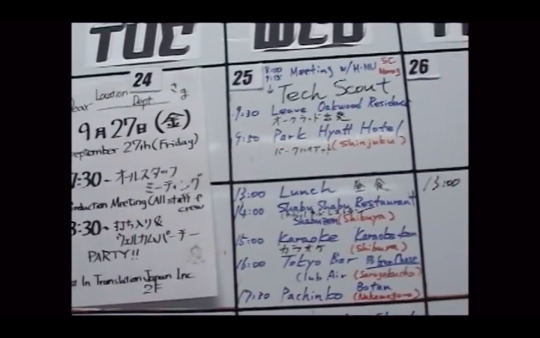 TUE
WED
24
Location
Dept.
9月27日(金)
September 27th (Friday)
7:30~オールスタッフ
ミーティング
Production Meeting (All staff &
crew
8:30~打ち入り&
ウェルカムパーチー
PARTY!!
st In Translation Japan Inc.
2F
25
8:00
9:15
Meeting w/
S.C.
Tech Scout
9:30 Leave Oakwood Residence
オークウッド出発
9:50 Park Hyatt Hotel
パークハイアット (Shinjuku)
13:00 Lunch 昼食
14:00 Shabu Shabu Restaurant
(Shibuya)
15:00 Karaoke
カラオケ (Shibuya)
16:00 Tokyo Bar
Club Air (Sarugakucho)
17:30 Pachinko
(Nakameguro)
26
13:00